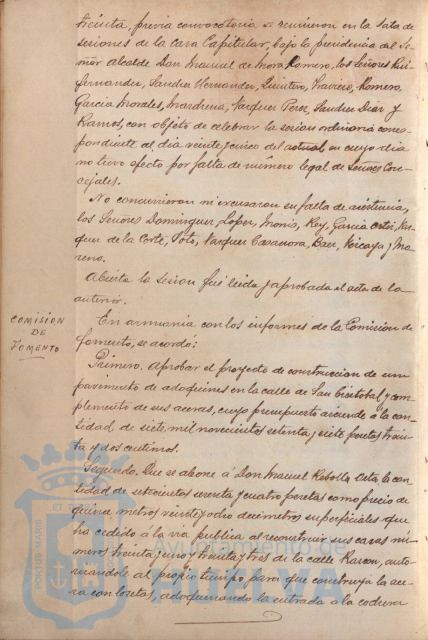 treinta, previa convocatoria se reunieron en la Sala de
sesiones de la Casa Capitular, bajo la presidencia del Se-
ñor Alcalde Don Manuel de Mora Romero, los Señores Ruif-
fernandez, Sanchez Hernandez, Quintero, Romero,
Garcia Morales, Marchena, Vazquez Perez, Sanchez Diaz y
Ramos, con objeto de celebrar la sesion ordinaria corres-
pondiente al dia veinte y cinco del actual, en cuyo dia
no tuvo efecto por falta de número legal de Señores Con-
cejales.
No concurrieron ni excusaron su falta de asistencia,
los Señores Dominguez, Lopez, Monis, Rey, Garcia
de la Corte, Soto, Vazquez Casanova, Baez, Vizcaya y Mo-
reno.
Abierta la sesion fué leida y aprobada el acta de la
anterior.
COMISION
DE
FOMENTO
En armonia con los informes de la Comision de
fomento, se acordó:
Primero. Aprobar el proyecto de construccion de un
pavimento de adoquines en la calle de San Cristobal y com-
plemento de sus aceras, cuyo presupuesto asciende á la can-
tidad de siete mil novecientas setenta y siete pesetas trein-
ta y dos centimos.
Segundo. Que se abone á Don Manuel Rebollo la can-
tidad de setecientas y cuatro pesetas como precio de
quince metros veinte y ocho decimetros superficiales que
ha cedido á la via publica al reconstruir sus casas nú-
meros treinta y uno y treinta y tres de la calle Rascon, auto-
rizandole al propio tiempo para que construya la ace-
ra con losetas, adoquinando la entrada á la cochera
PORTUS MARIS
Ayuntamiento de
HUELVA